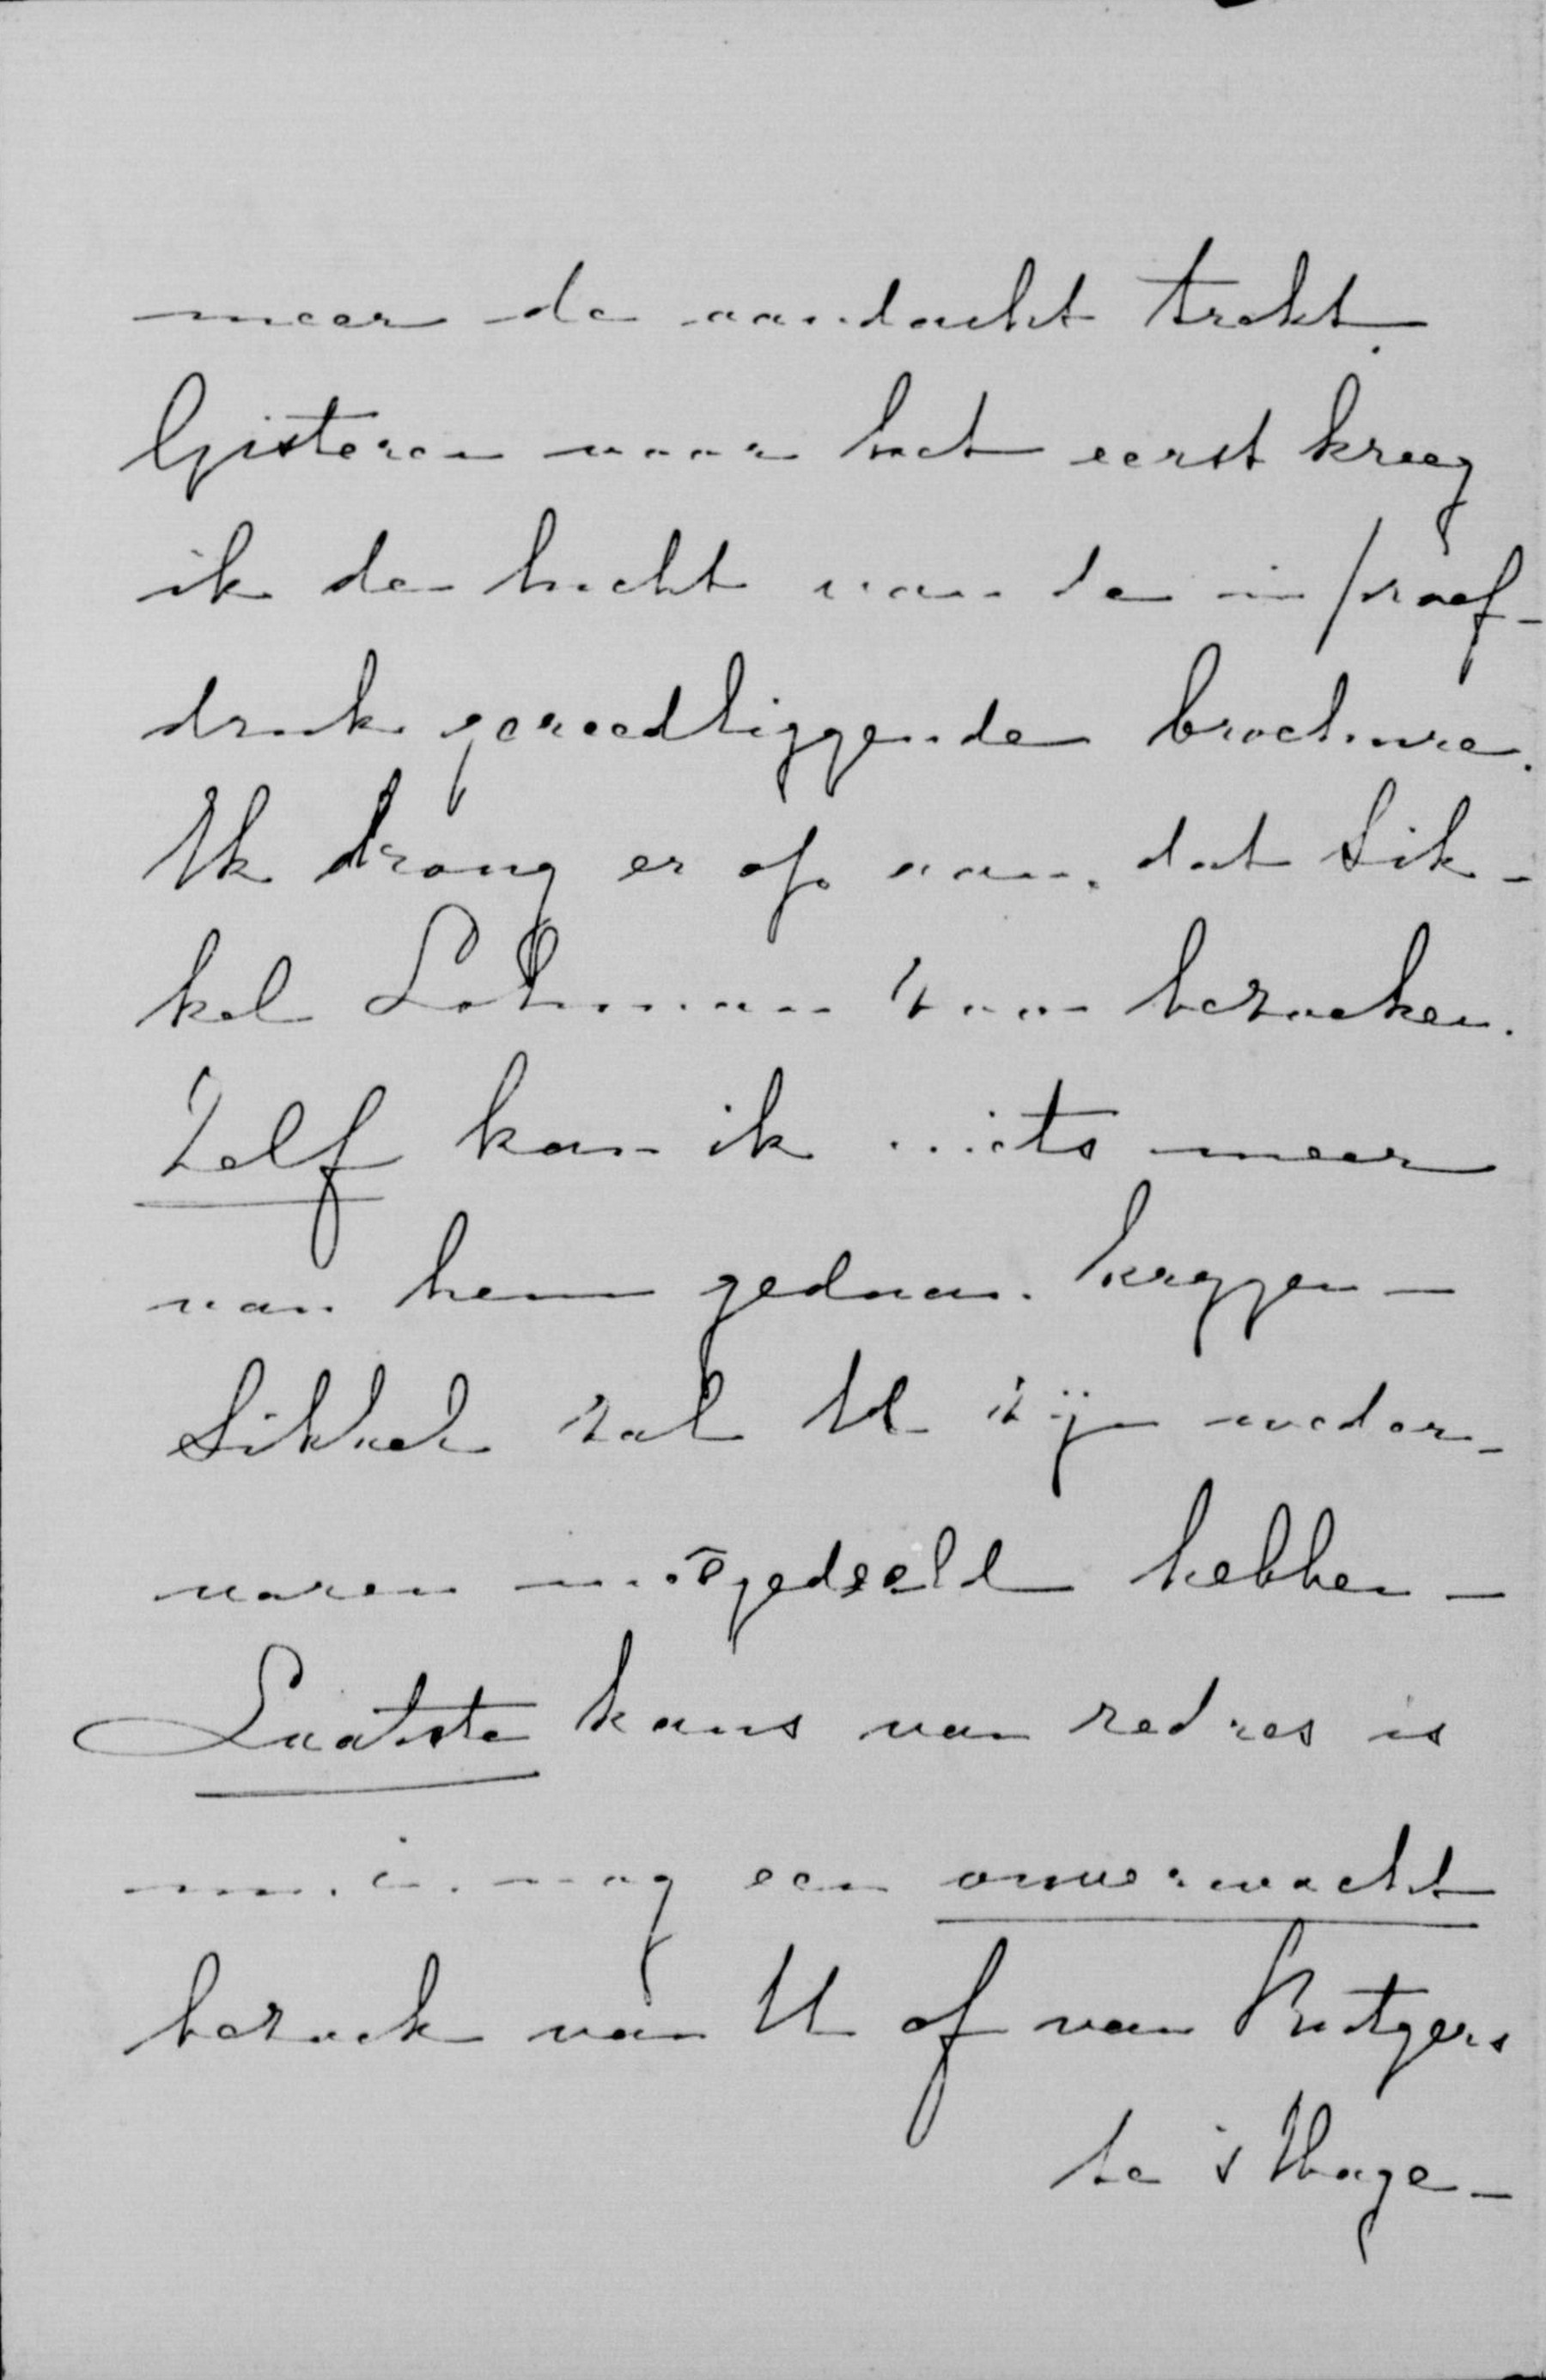 meer de aandacht trekt.
Gisteren voor het eerst kreeg
ik de lucht van de in proef-
druk gereedliggende brochure.
Ik drong er op aan, dat Sik-
kel Lohman zou bezoeken.
Zelf kan ik niets meer
van hem gedaan krijgen —
Sikkel zal U zijn weder-
varen meêgedeeld hebben —
Laatste kans van redres is
m. i. nog een onverwacht
bezoek van U of van Rutgers
te 's Hage —